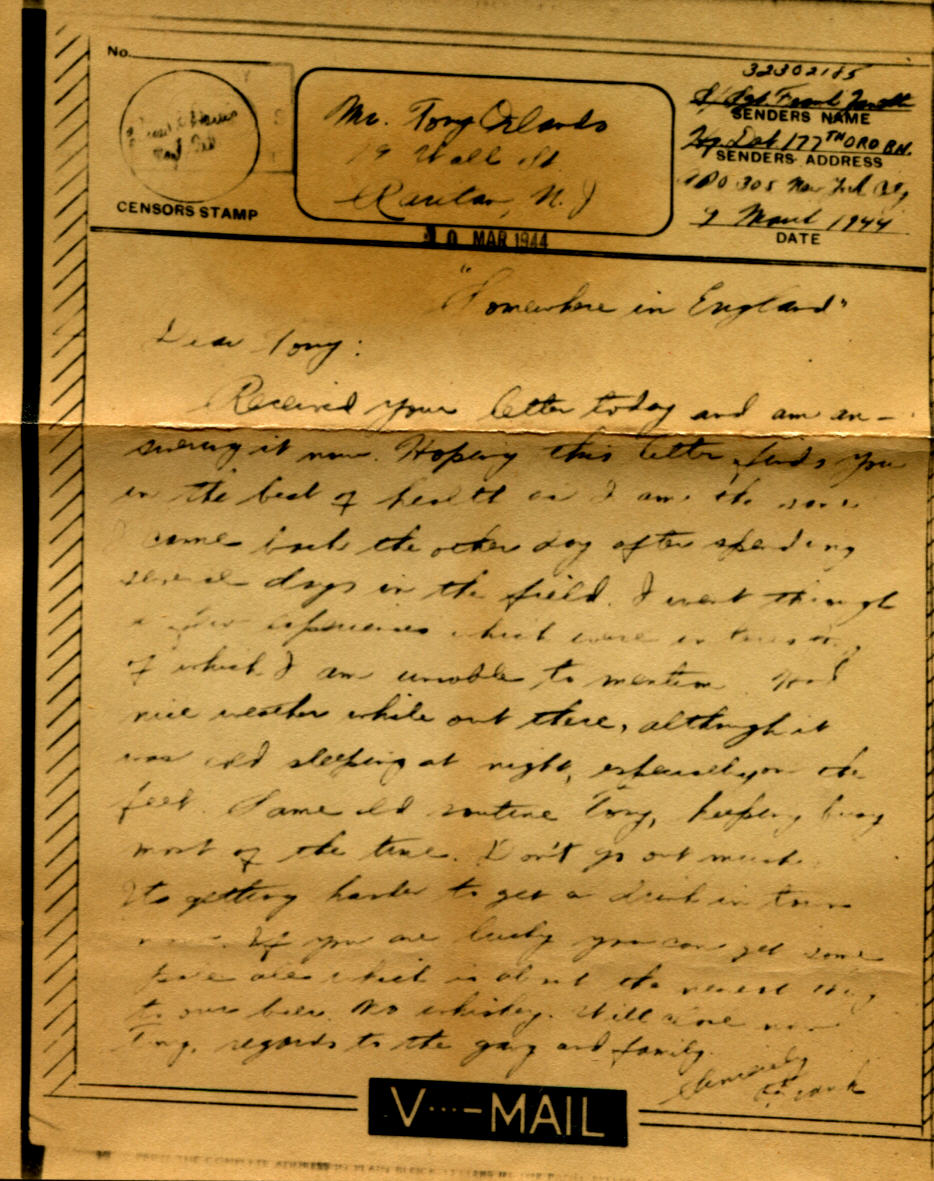 No.
32302185
S/Sgt. Frank
SENDERS NAME
Mr. Tony Orlando
Hq. Det 177TH ORD BN.
SENDERS ADDRESS
19 Wall St
APO 305 New York City
Raritan, N. J
9 March 1944
DATE
CENSORS STAMP
10 MAR 1944
"Somewhere in England"
Dear Tony:
Received your letter today and am an-
swering it now. Hoping this letter finds you
in the best of health as I am the same
I came back the other day after spending
several days in the field. I went through
a few experiences which were interesting
of which I am unable to mention. Had
nice weather while out there, although it
was cold sleeping at night, especially on the
feet. Same old routine Tony, keeping busy
most of the time. Don't go out much.
Its getting harder to get a drink in town
now. If you are lucky you can get some
pale ale which is about the nearest thing
to our beer. No whiskey. Will close now
Tony, regards to the gang and family.
Sincerely
Frank
V···—MAIL